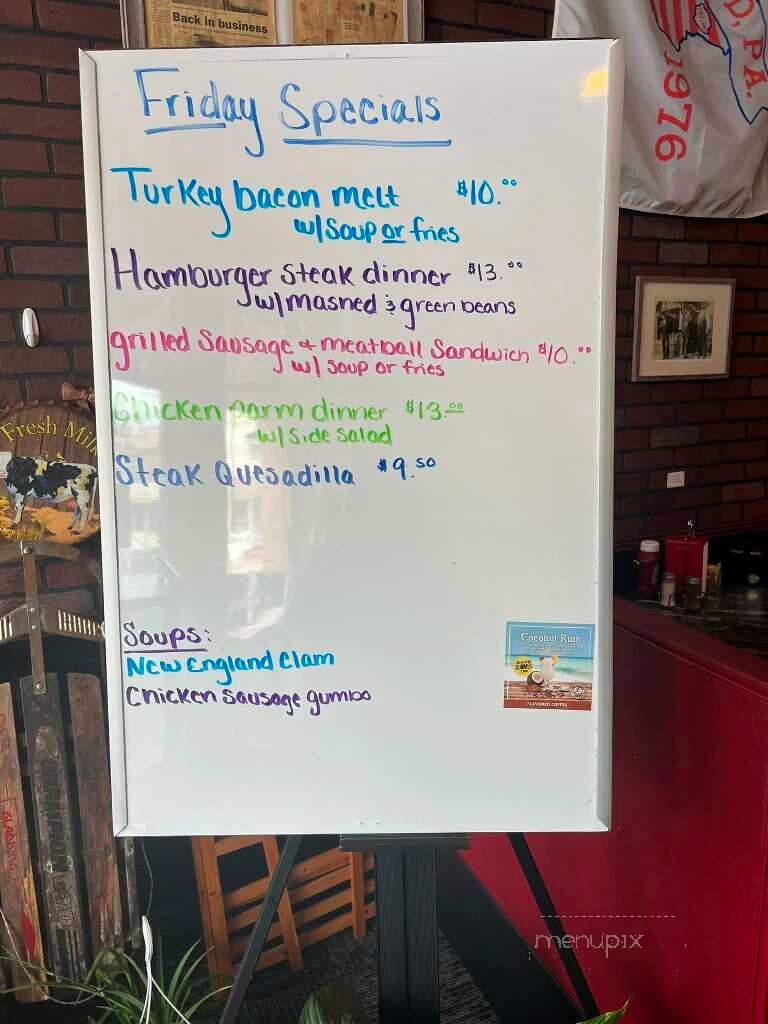 Back in business
D, PA.
1976
Friday Specials
Turkey bacon melt $10.00
w/ Soup or fries
Hamburger steak dinner $13.00
w/ mashed & green beans
grilled Sausage & meatball Sandwich $10.00
w/ soup or fries
Chicken parm dinner $13.00
w/ side salad
Steak Quesadilla $9.50
Fresh Milk
Soups:
New England Clam
Chicken sausage gumbo
Coconut Rum
FLAVORED COFFEE
menupix